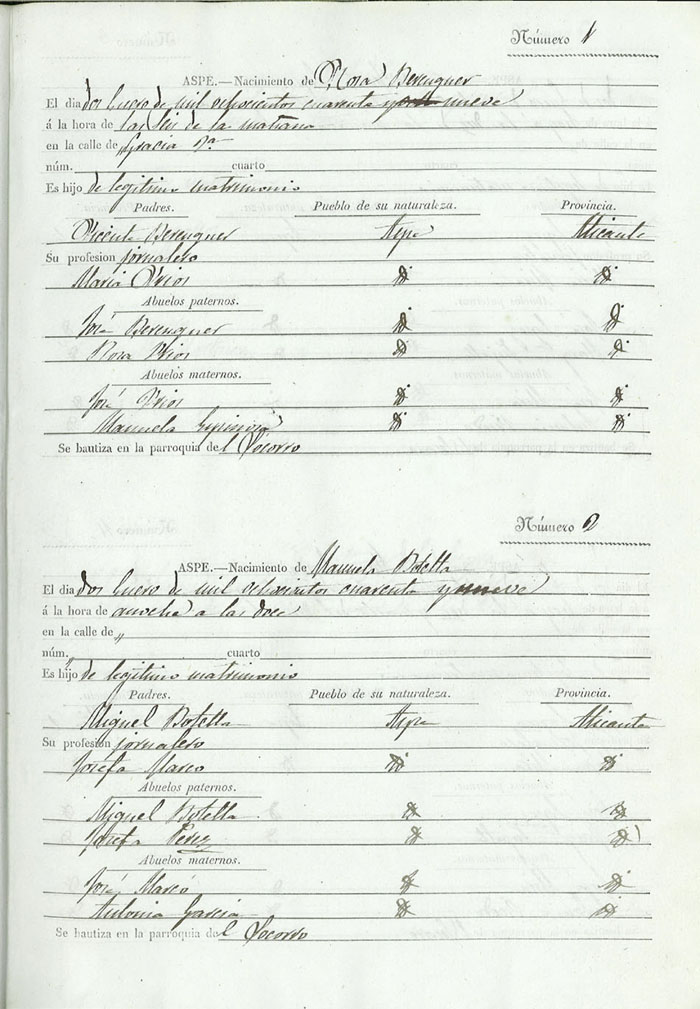 Número 1
ASPE.—Nacimiento de Rosa Berenguer
El dia dos Enero de mil ochocientos cuarenta y nueve
á la hora de las seis de la mañana
en la calle de Gracia
núm. cuarto
Es hijo de legítimo matrimonio
Padres. Pueblo de su naturaleza. Provincia.
Vicente Berenguer Aspe Alicante
Su profesion jornalero
Maria id id
Abuelos paternos.
José Berenguer id id
Rosa id id
Abuelos maternos.
José id id
Manuela Espinosa id id
Se bautiza en la parroquia del Socorro
Número 2
ASPE.—Nacimiento de Manuela Botella
El dia dos Enero de mil ochocientos cuarenta y nueve
á la hora de anoche a las doce
en la calle de „
núm. „ cuarto
Es hijo de legítimo matrimonio
Padres. Pueblo de su naturaleza. Provincia.
Miguel Botella Aspe Alicante
Su profesion jornalero
Josefa Marco id id
Abuelos paternos.
Miguel Botella id id
Josefa Perez id id
Abuelos maternos.
José Marco id id
Antonia Garcia id id
Se bautiza en la parroquia del Socorro